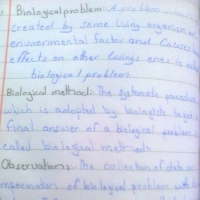 Biological problem: A problem
created by some living organism or
enviuromental factor and causes
effects on other livings ones is
biological problem
Biological method: The systematic
which is adopted by biologists
Final answer of a biological problem
called biological method
Observations:- The collection of data or
of biological problem with